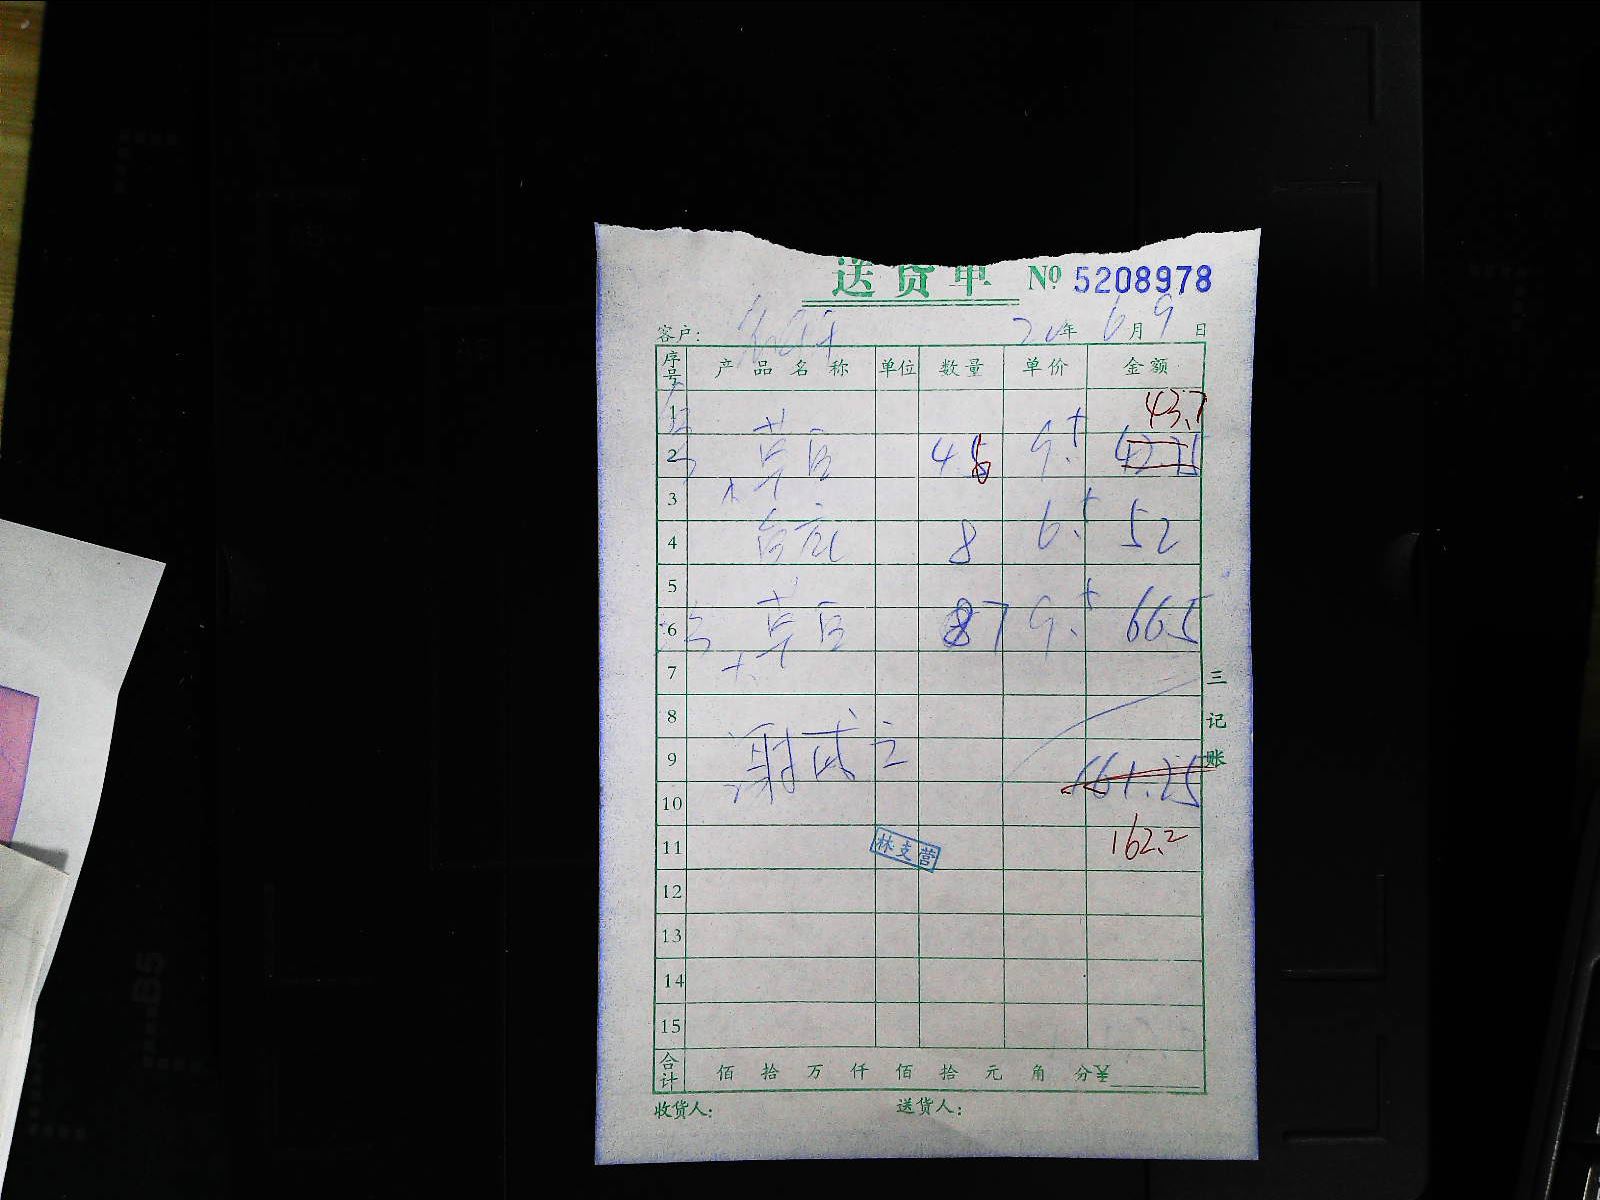 送货单 № 5208978
客户: 20年 6月 9日
序号 产品名称 单位 数量 单价 金额
1 43.7
2 草豆 46 9.5
3
4 8 6.5 52
5
6 草豆 87 9.5 665
7
8
9 谢成立
10 161.25
11 林支营 162.2
12
13
14
15
合计 佰 拾 万 仟 佰 拾 元 角 分¥
收货人: 送货人:
三记账
B5